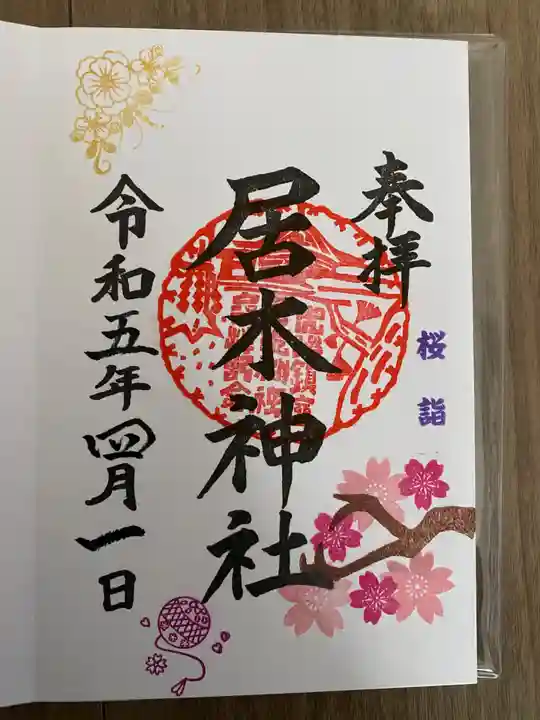 奉拝
桜詣
居木神社
令和五年四月一日